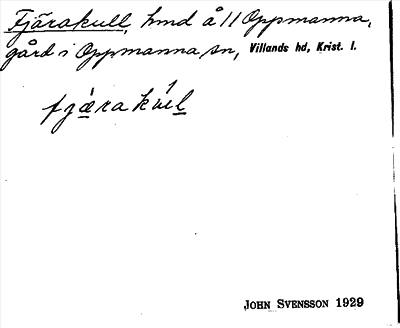 Fjärakull, hmd å 11 Oppmanna,
gård i Oppmanna sn, Villands hd, Krist. l.
fjæ̀ra kúl
JOHN SVENSSON 1929